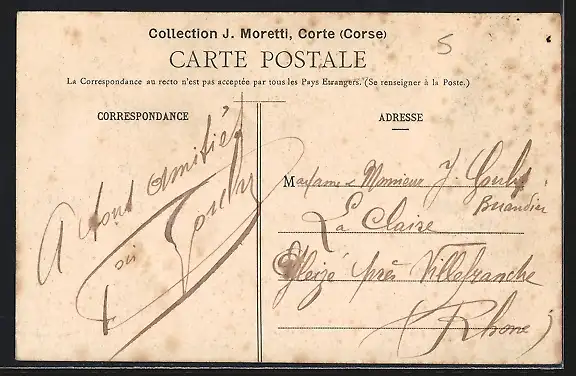 Collection J. Moretti, Corte (Corse)
5
CARTE POSTALE
La Correspondance au recto n'est pas acceptée par tous les Pays Etrangers. (Se renseigner à la Poste.)
CORRESPONDANCE
A tous amitiés
ADRESSE
Madame & Monsieur J.
La Claire
Gleizé près Villefranche
(Rhône)